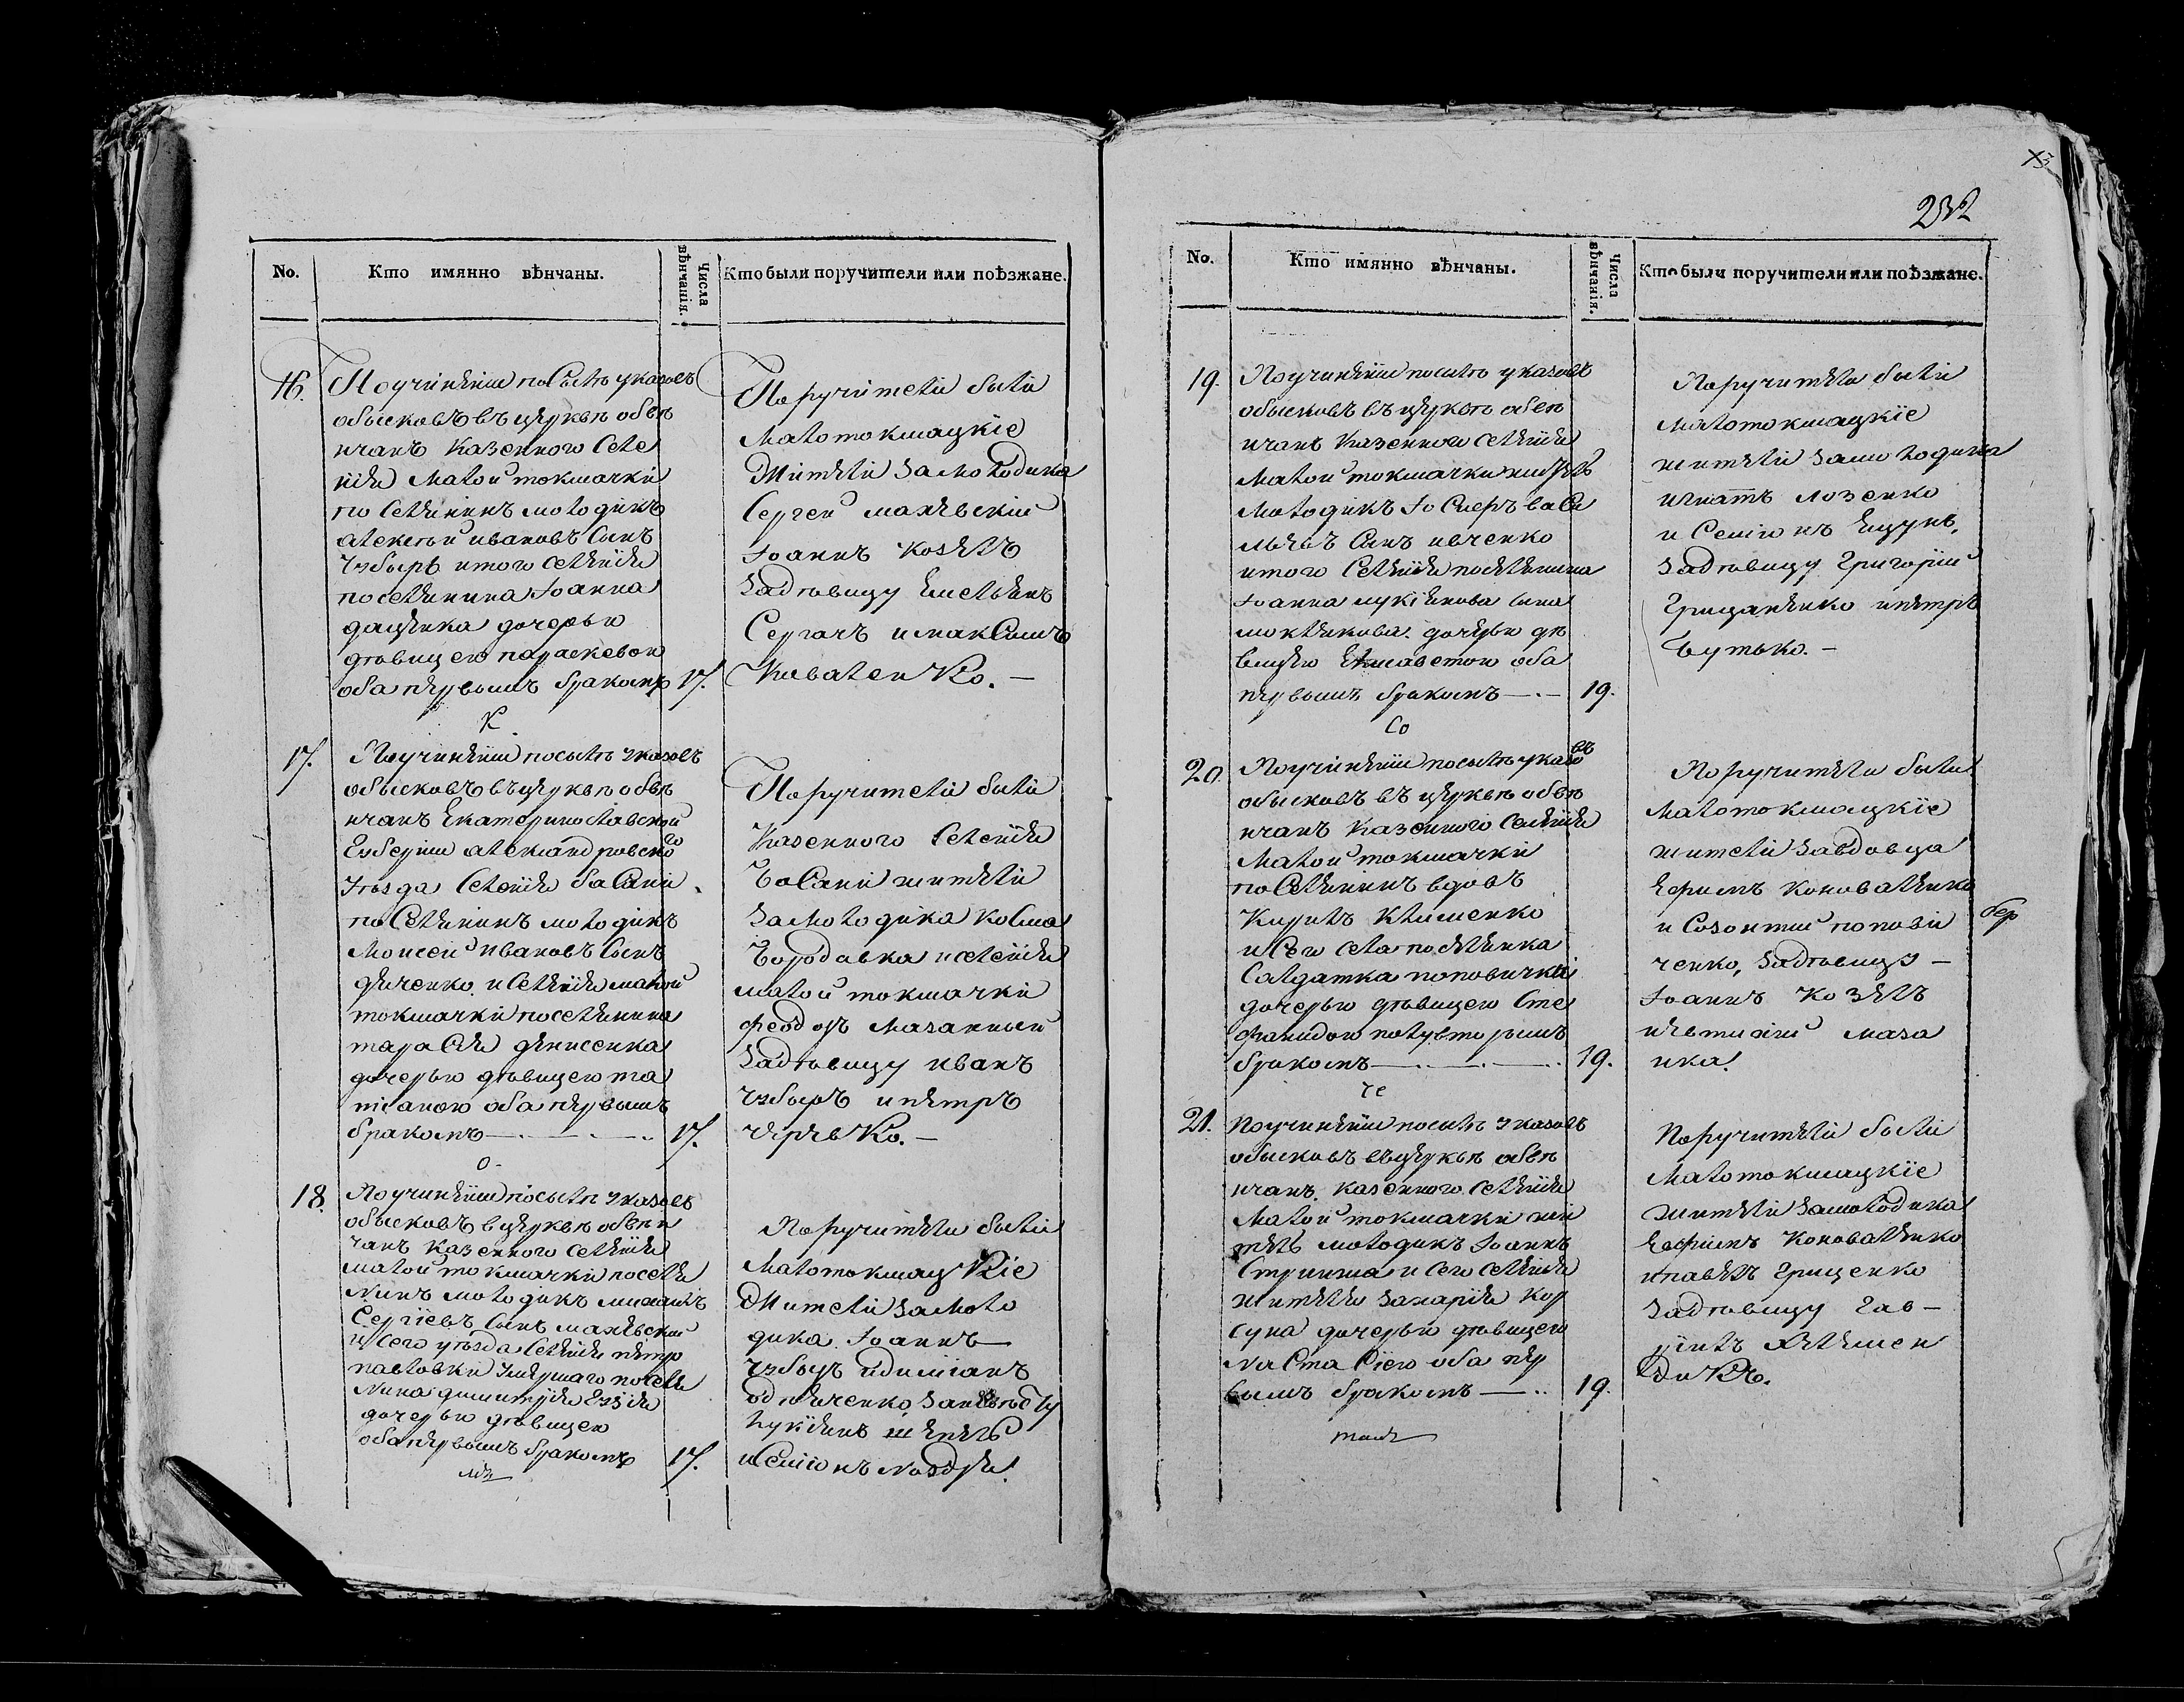 232
No.
Кто имянно вѣнчаны.
Числа вѣнчанія.
Кто были поручители или поѣзжане.
16.
Поучиненiи посылѣ указовъ
обысковъ въ церквѣ обвѣ
нчанъ казенного Селе
нiя Малой токмачки
поселянинъ молодикъ
алексѣй ивановъ Сынъ
итого селенiя
поселянина Iоанна
дочерью
дѣвицею параскевою
оба первымъ бракомъ
17.
Поручители были
Малотокмацкiе
Жители За молодика
Сергей маневскiй
Iоаннъ Козелъ
Задѣвицу Емельянъ
Сергачъ и макСимъ
Коваленко. —
К
17.
Поучиненiи посылѣ указовъ
обысковъ въ церквѣ обвѣ
нчанъ Екатеринославской
Губернiи александровского
Уѣзда Селенiя баСани
поСелянинъ молодикъ
Моисей Ивановъ Сынъ
дяченко и Селенiя малой
токмачки поселянина
тараСiя денисенка
дочерью дѣвицею та
тiаною оба первымъ
бракомъ
17.
Поручители были
Казенного Селенiя
БаСани жители
За Молодика КоСма
Бородавка и селенiя
малой токмачки
феодоръ Мазанный
Задѣвицу иванъ
и петръ
О
18.
Поучиненiи посылѣ указовъ
обысковъ в церквѣ обвѣн
чанъ казенного Селенiя
малой токмачки поселя
нинъ молодикъ михаилъ
Сергiевъ Сынъ маневскiй
и Сего уѣзда Селенiя петро
павловки умершаго поселя
нина димитрiя
дочерью дѣвицею
оба первымъ бракомъ
17.
Поручители были
Малотокмацкiе
Жители За Моло
дика Iоаннъ
и дамiанъ
за невѣсту
лукiянъ
и Семiонъ Ноздря.
No.
Кто имянно вѣнчаны.
Числа вѣнчанія.
Кто были поручители или поѣзжане.
19.
Поучиненiи посылѣ указовъ
обысковъ въ церквѣ обвѣ
нчанъ Казенного селенiя
Малой токмачки житель
Молодикъ ваСи
льевъ Сынъ ивченко
итого Селенiя поселянина
Iоанна лукiянова сына
дочерью дѣ
вицею Елисаветою оба
первымъ бракомъ
19.
Поручители были
Малотокмацкiе
жители За молодика
игнатъ лозенко
и Семiонъ Ецунъ,
Задѣвицу Григорiй
Грицаненко ипетръ
Бутько. —
Со
20.
Поучиненiи посылѣ указовъ
обысковъ въ церквѣ обвѣ
нчанъ Казенного Селенiя
Малой токмачки
поСелянинъ вдовъ
Кирилъ Клименко
и Сего села поселянка
Салдатка поповички
дочерью дѣвицею Сте
фанидою полувторымъ
бракомъ
19.
Поручители были
Малотокмацкiе
жители За вдовца
Ефимъ Коноваленко
и Созонтий попови
ченко, Задѣвицу —
Iоаннъ Козелъ
и евтихiй маза
нка.
бер
че
21.
Поучиненiи посылѣ указовъ
обысковъ въ церквѣ обвѣ
нчанъ казенного Селенiя
Малой токмачки жи
тель молодикъ Iоаннъ
Стрижка и Сего Селенiя
жителя Захарiя Кор
суна дочерью дѣвицею
АнаСтаСiею оба пер
вымъ бракомъ
19.
Поручители были
Малотокмацкiе
жители За молодика
Ефимъ Коноваленко
ипавелъ Грищенко
Задѣвицу Гав —
рiилъ